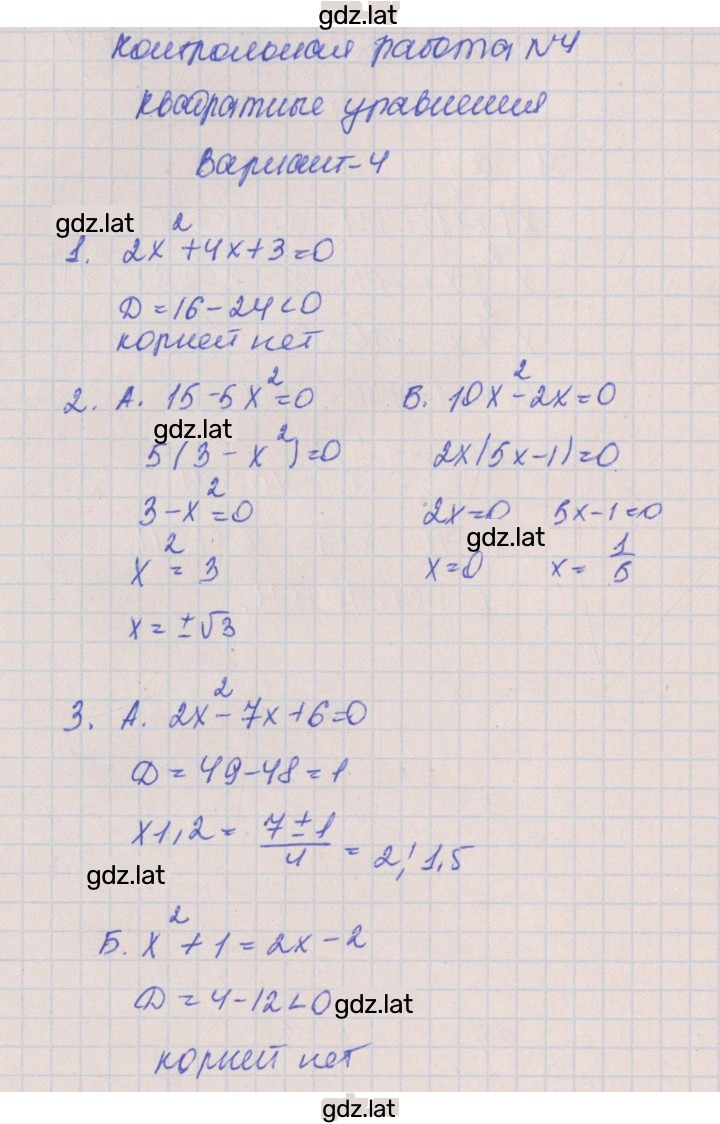 gdz.lat
Контрольная работа №4
Квадратные уравнения
Вариант-4
gdz.lat
1. 2x²+4x+3=0
D=16-24<0
корней нет
2. А. 15-5x²=0
gdz.lat
5(3-x²)=0
3-x²=0
x²=3
x=±√3
В. 10x²-2x=0
2x(5x-1)=0
2x=0 5x-1=0
gdz.lat
x=0 x=1/5
3. А. 2x²-7x+6=0
D=49-48=1
x1,2=(7±1)/4=2; 1,5
gdz.lat
Б. x²+1=2x-2
D=4-12<0
gdz.lat
корней нет
gdz.lat